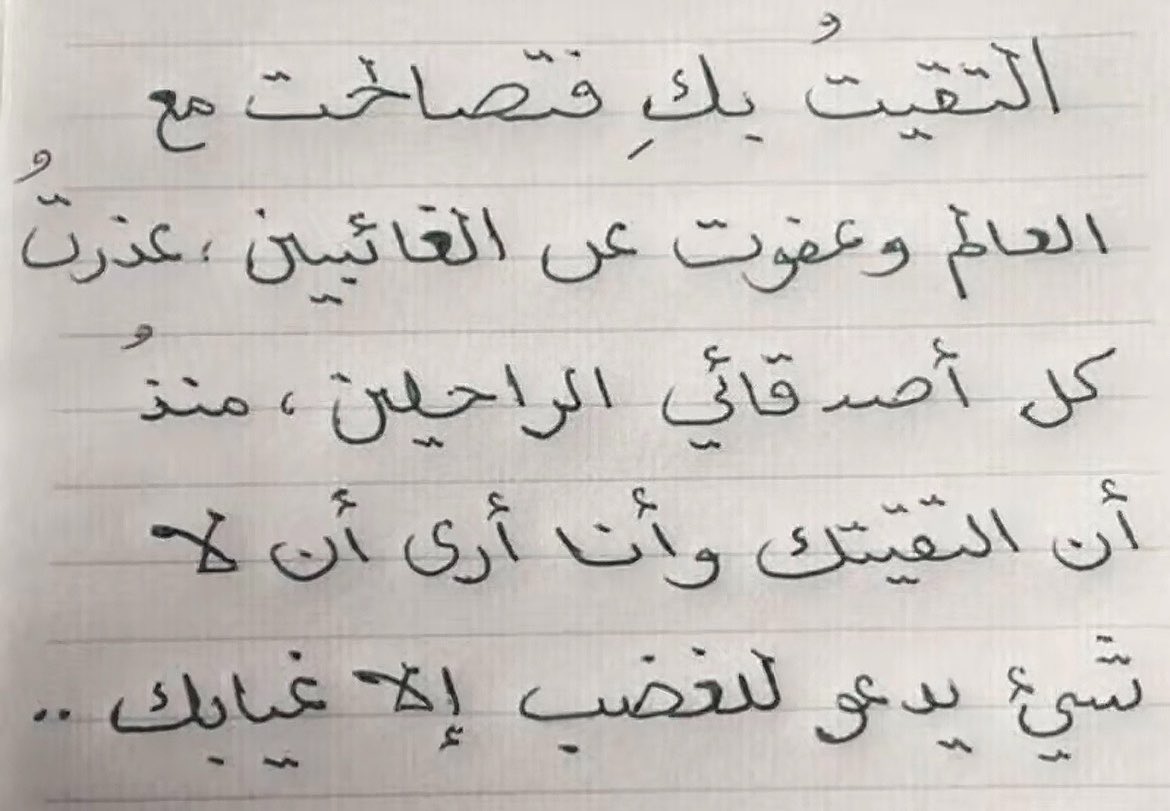 التقيتُ بكِ فتصالحت مع
العالم وعفوت عن الغائبين ، عذرتُ
كل أصدقائي الراحلين ، منذُ
أن التقيتك وأنا أرى أن لا
شيئ يدعو للغضب إلا غيابك ..